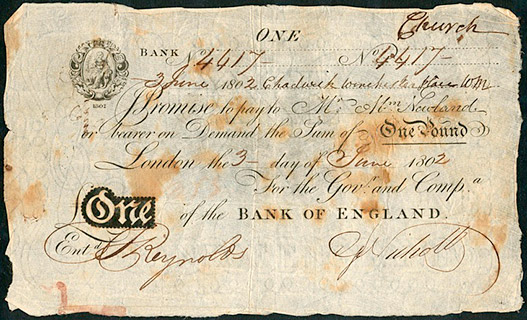 Church
ONE
BANK No 4417 - No 4417 -
3 June 1802 Chadwick
I Promise to pay to Mr. Abm Newland
or bearer on Demand the Sum of One Pound
London the 3 - day of June 1802
For the Govr. and Compa.
One of the BANK OF ENGLAND.
Entd. J Reynolds
1801